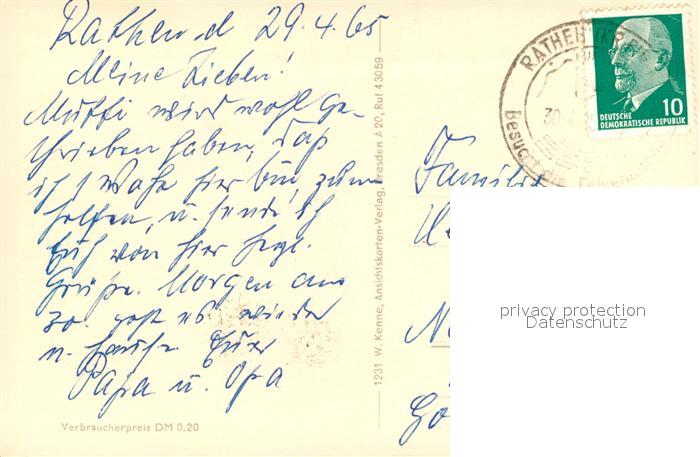 Rathen d 29.4.65
Meine Lieben!
Mutti wird wohl ge-
schrieben haben, daß
ich 1 Woche hier bin, zum
helfen, u. sende ich
Euch von hier herzl.
Grüße. Morgen am
30. geht es wieder
n. Hause Euer
Papa u. Opa
Verbraucherpreis DM 0,20
1231 W. Kenne, Ansichtskarten-Verlag, Dresden A 20, Ruf 43059
RATHEN
30.
Besucht die
DEUTSCHE
DEMOKRATISCHE REPUBLIK
10
Familie
privacy protection
Datenschutz